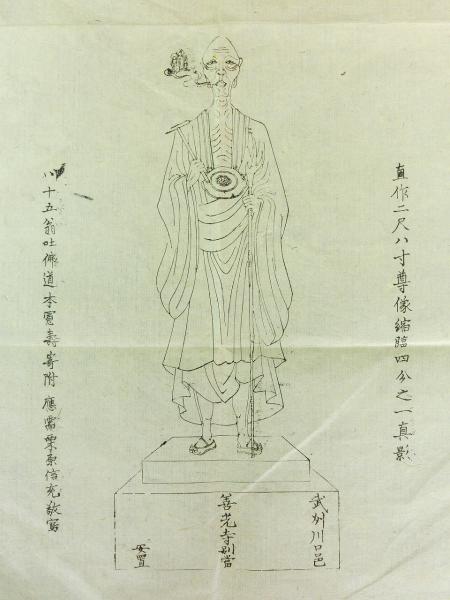 直作二尺八寸尊像縮臨四分之一真影
武州川口邑
善光寺別當
安置
八十五翁吐佛道本寛壽寄附 應需栗原信充敬寫